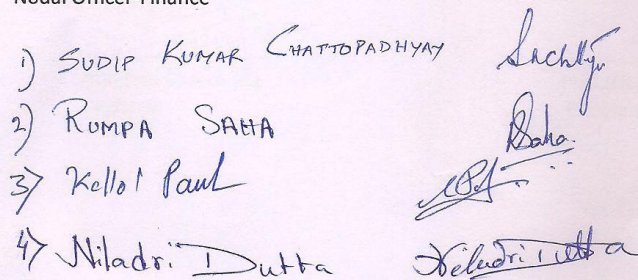 Nodal Officer Finance
1) SUDIP KUMAR CHATTOPADHYAY
2) RUMPA SAHA RSaha.
3) Kallol Paul
4) Niladri Dutta Niladri Dutta